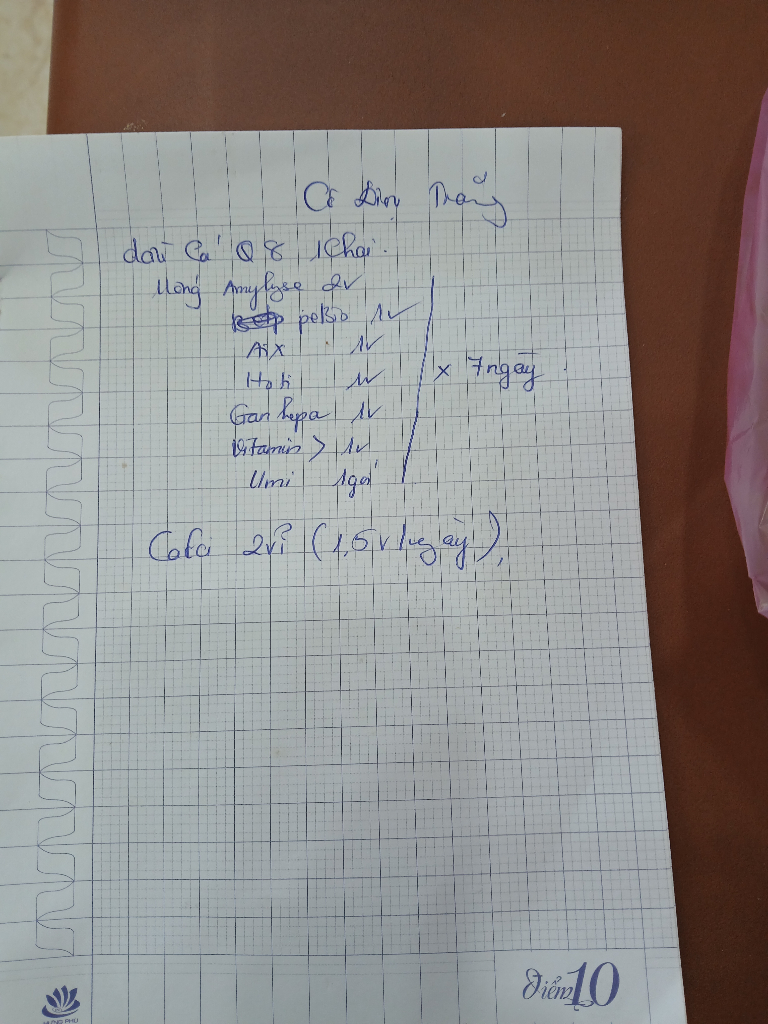 Cô Diện Trắng
dầu Cá Q8 1 Chai.
Uống Amylyse 2v
peBio 1v
Aix 1v
Hoti 1v
Gan hepa 1v
Vitamin > 1v
Umi 1gói
x 7 ngày
Cafa 2vỉ (1,5v/ngày),
điểm 10